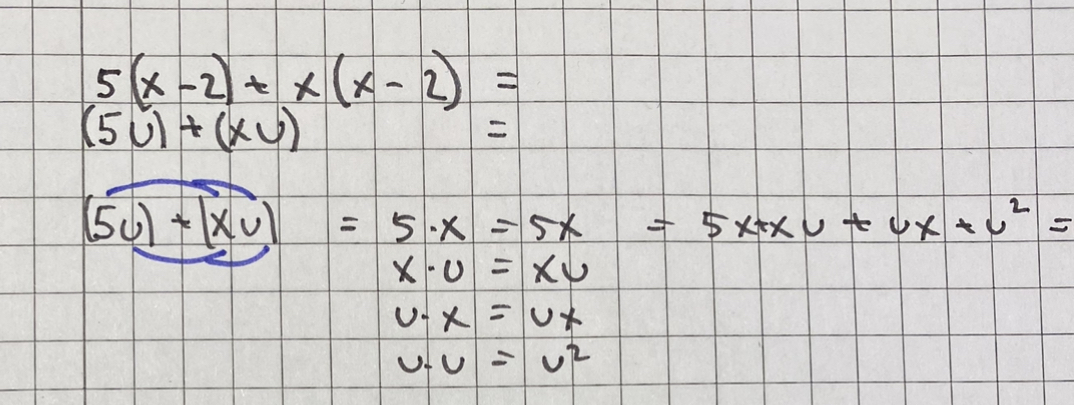 5(x-2)+x(x-2) =
(5u)+(xu) =
(5u)+(xu) = 5·x = 5x = 5x+xu+ux+u² =
x·u = xu
u·x = ux
u·u = u²